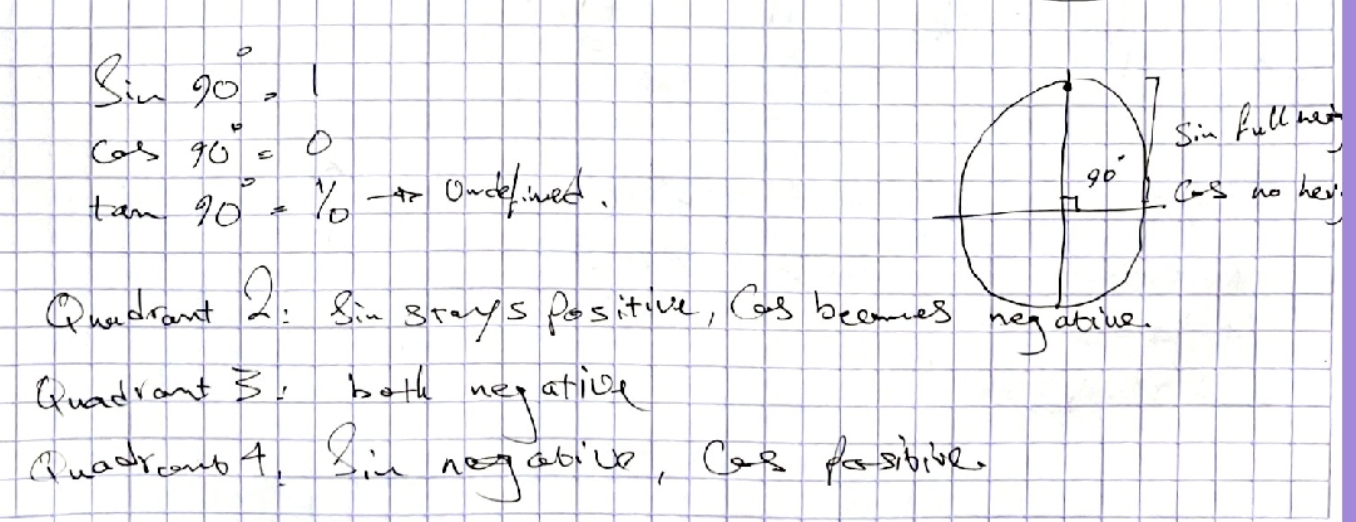 Sin 90° = 1
Cos 90° = 0
tan 90° = 1/0 → Undefined.
90°
Sin full
Cos no
Quadrant 2: Sin stays positive, Cos becomes negative.
Quadrant 3: both negative
Quadrant 4, Sin negative, Cos positive.